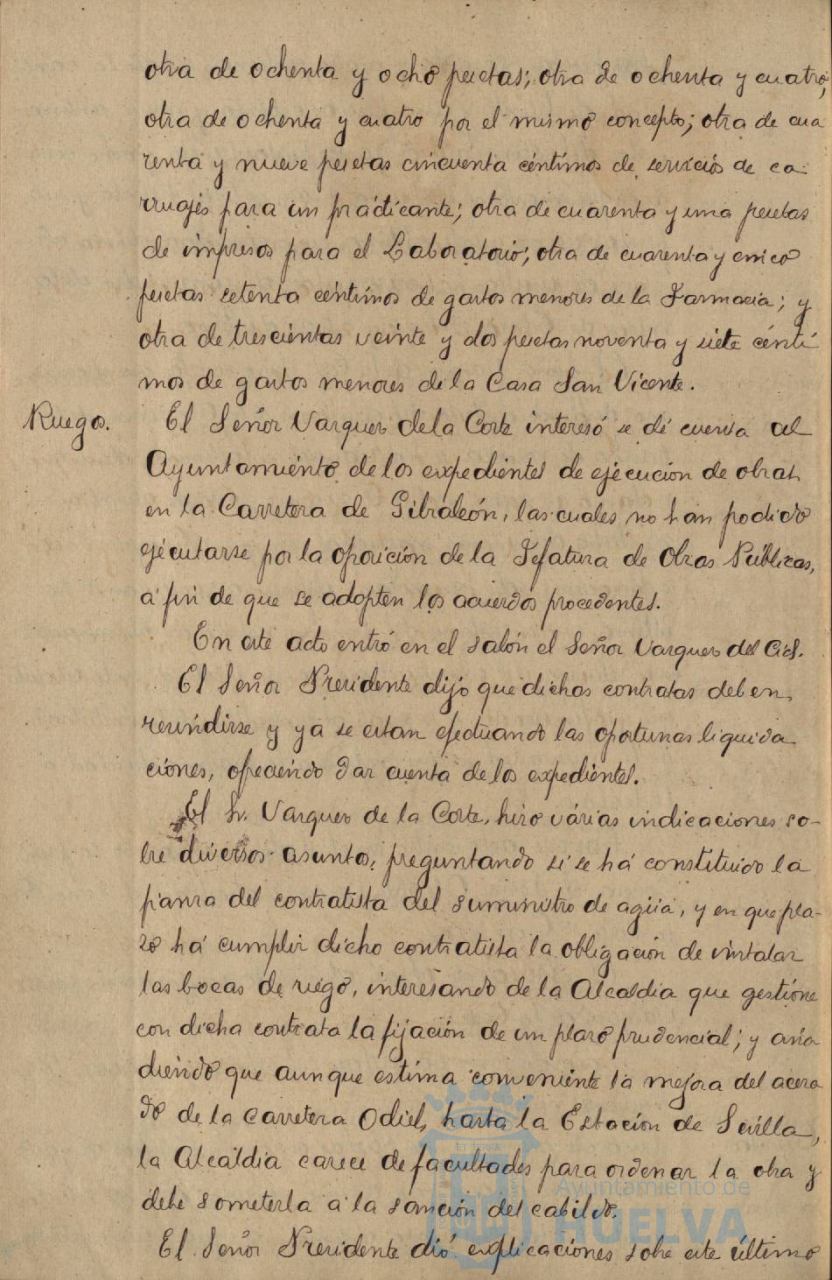 otra de ochenta y ocho pesetas; otra de ochenta y cuatro,
otra de ochenta y cuatro por el mismo concepto; otra de cua
renta y nueve pesetas cincuenta céntimos de servicios de ca-
rruajes para un practicante; otra de cuarenta y una pesetas
de impresos para el Laboratorio; otra de cuarenta y cinco
pesetas setenta céntimos de gastos menores de la Farmacia; y
otra de trescientas veinte y dos pesetas noventa y siete cénti
mos de gastos menores de la Casa San Vicente.
Ruego. El Señor Vazquez de la Corte interesó se dé cuenta al
Ayuntamiento de los expedientes de ejecucion de obras
en la Carretera de Gibraleón, las cuales no han podido
ejecutarse por la oposición de la Jefatura de Obras Públicas,
a fin de que se adopten los acuerdos procedentes.
En este acto entró en el salón el Señor Vazquez del Cid.
El Señor Presidente dijo que dichas contratas deben
rescindirse y ya se estan efectuando las oportunas liquida
ciones, ofreciendo dar cuenta de los expedientes.
El Sr. Vazquez de la Corte, hizo várias indicaciones so-
bre diversos asuntos, preguntando si se há constituido la
fianza del contratista del suministro de agua, y en que pla-
zo há cumplir dicho contratista la obligación de instalar
las bocas de riego, interesando de la Alcaldia que gestione
con dicha contrata la fijación de un plazo prudencial; y aña
diendo que aunque estima conveniente la mejora del acera
do de la Carretera Odiel, hasta la Estación de Sevilla,
la Alcaldia carece de facultades para ordenar la obra y
debe someterla á la sanción del cabildo.
El Señor Presidente dió explicaciones sobre este último
Ayuntamiento de
HUELVA